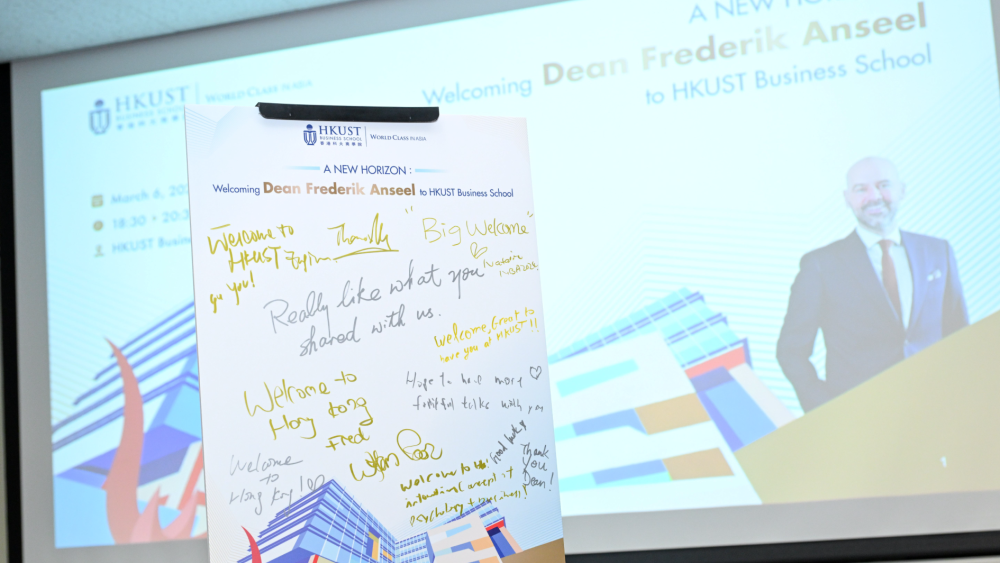 A NEW HORI
Welcoming Dean Frederik Anseel
to HKUST Business School
HKUST
BUSINESS SCHOOL
WORLD CLASS IN ASIA
March 6, 20
18:30 - 20:3
HKUST Busin
HKUST
BUSINESS SCHOOL
香港科大商學院
WORLD CLASS IN ASIA
A NEW HORIZON :
Welcoming Dean Frederik Anseel to HKUST Business School
Welcome to
HKUST
you!
"Big Welcome"
Really like what you
shared with us.
Welcome, Great to
have you at HKUST!!
Hope to have more
talks with you
Welcome to
Hong Kong
Fred
Welcome
to
Hong Kong
Welcome to
psychology + business!
Thank
you
Dean!